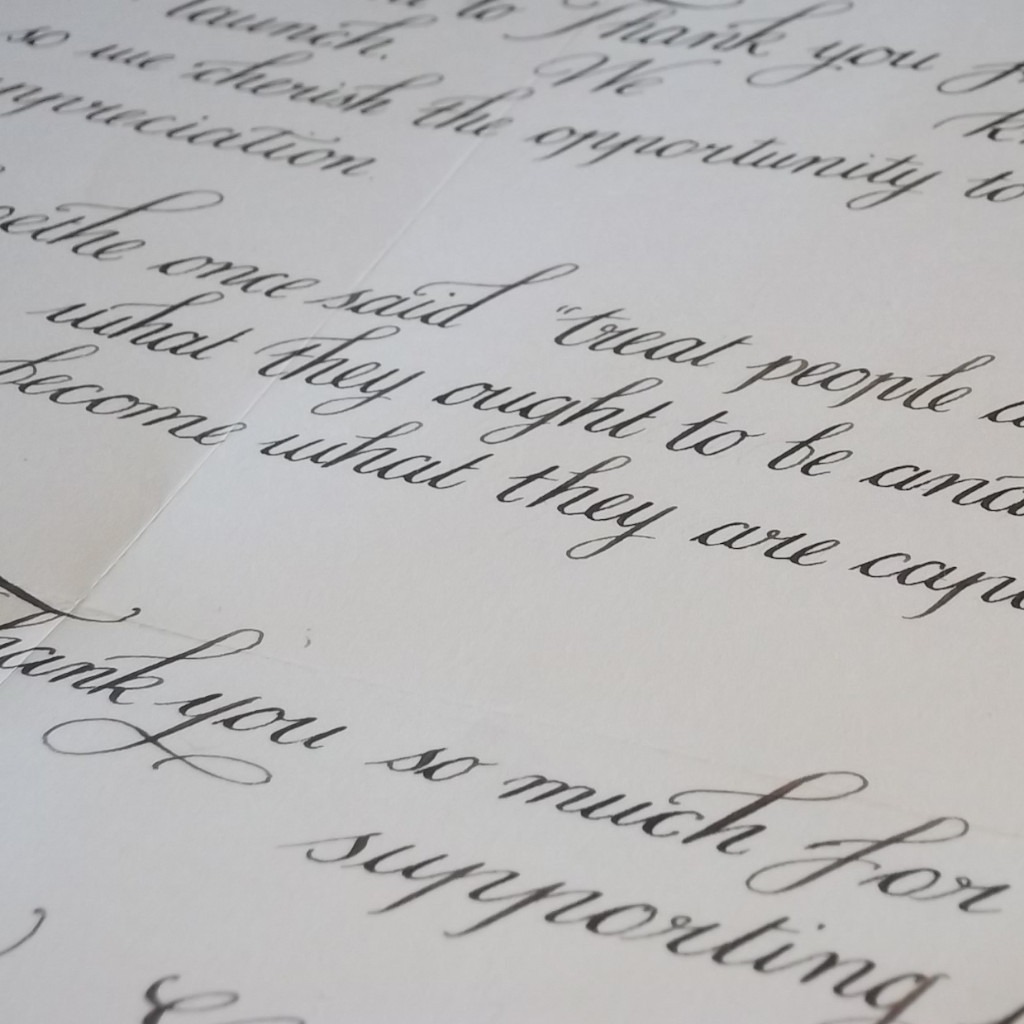 to Thank you
launch. We
so we cherish the opportunity to
appreciation.
Goethe once said "treat people
what they ought to be and
become what they are capa
Thank you so much for
supporting